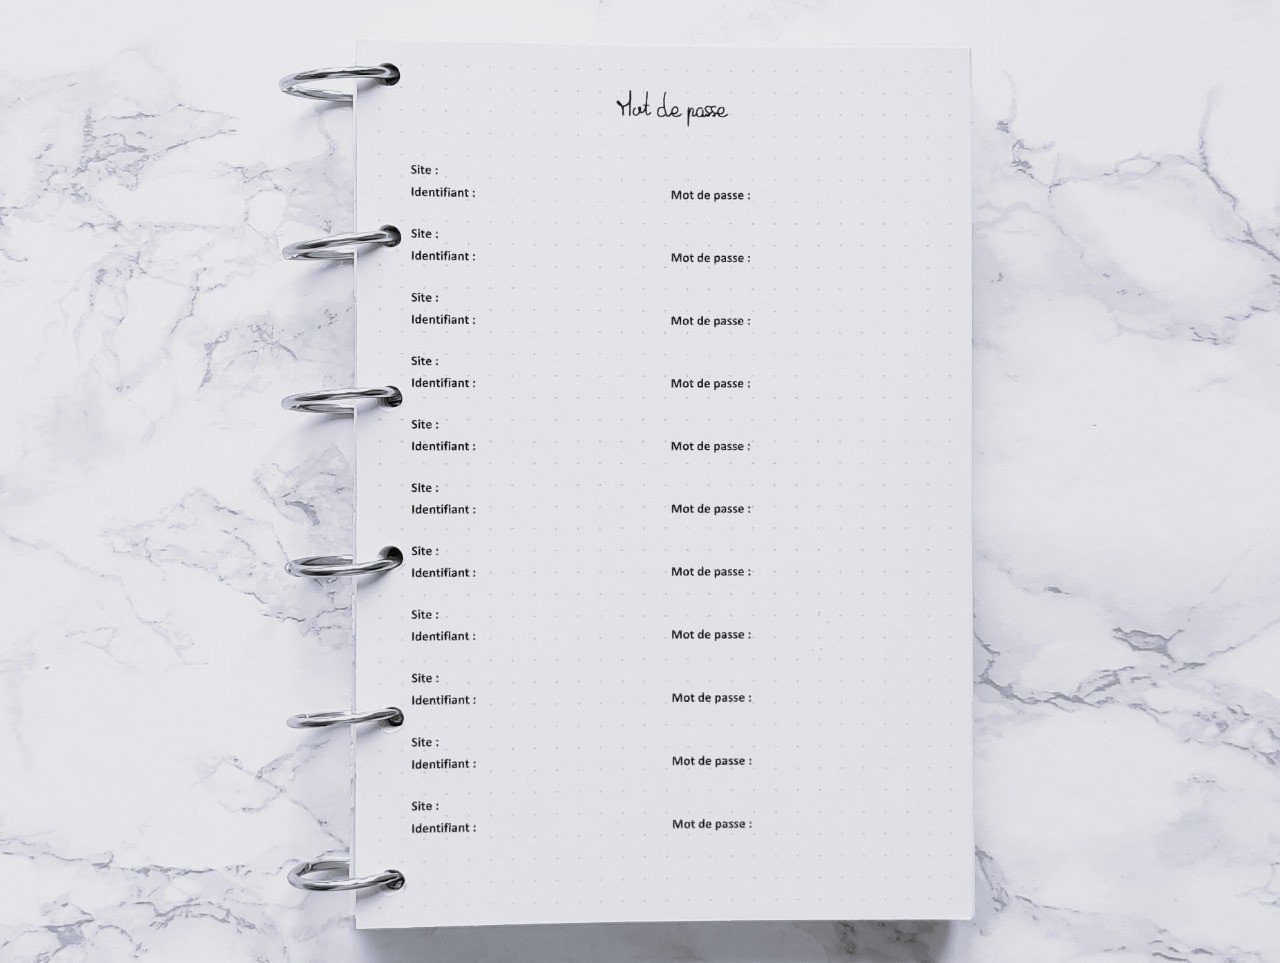 Mot de passe
Site :
Identifiant : Mot de passe :
Site :
Identifiant : Mot de passe :
Site :
Identifiant : Mot de passe :
Site :
Identifiant : Mot de passe :
Site :
Identifiant : Mot de passe :
Site :
Identifiant : Mot de passe :
Site :
Identifiant : Mot de passe :
Site :
Identifiant : Mot de passe :
Site :
Identifiant : Mot de passe :
Site :
Identifiant : Mot de passe :
Site :
Identifiant : Mot de passe :